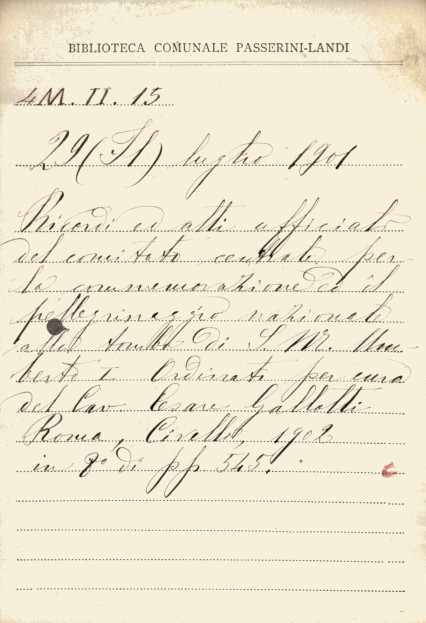 BIBLIOTECA COMUNALE PASSERINI-LANDI
4M. II. 15
29 (Il) luglio 1901
Ricordi ed atti ufficiali
del comitato centrale per
la commemorazione ed il
pellegrinaggio nazionale
alla tomba di S. M. Um-
berto I Ordinato per cura
del Cav Cesare Gallotti
Roma, Civelli, 1902
in 8° di pp 545.